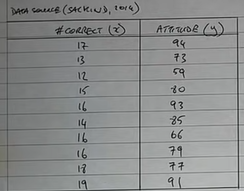 DATA SOURCE (SACKIND, 2014)
# CORRECT (x) ATTITUDE (y)
17 94
13 73
12 59
15 80
16 93
14 85
16 66
16 79
18 77
19 91